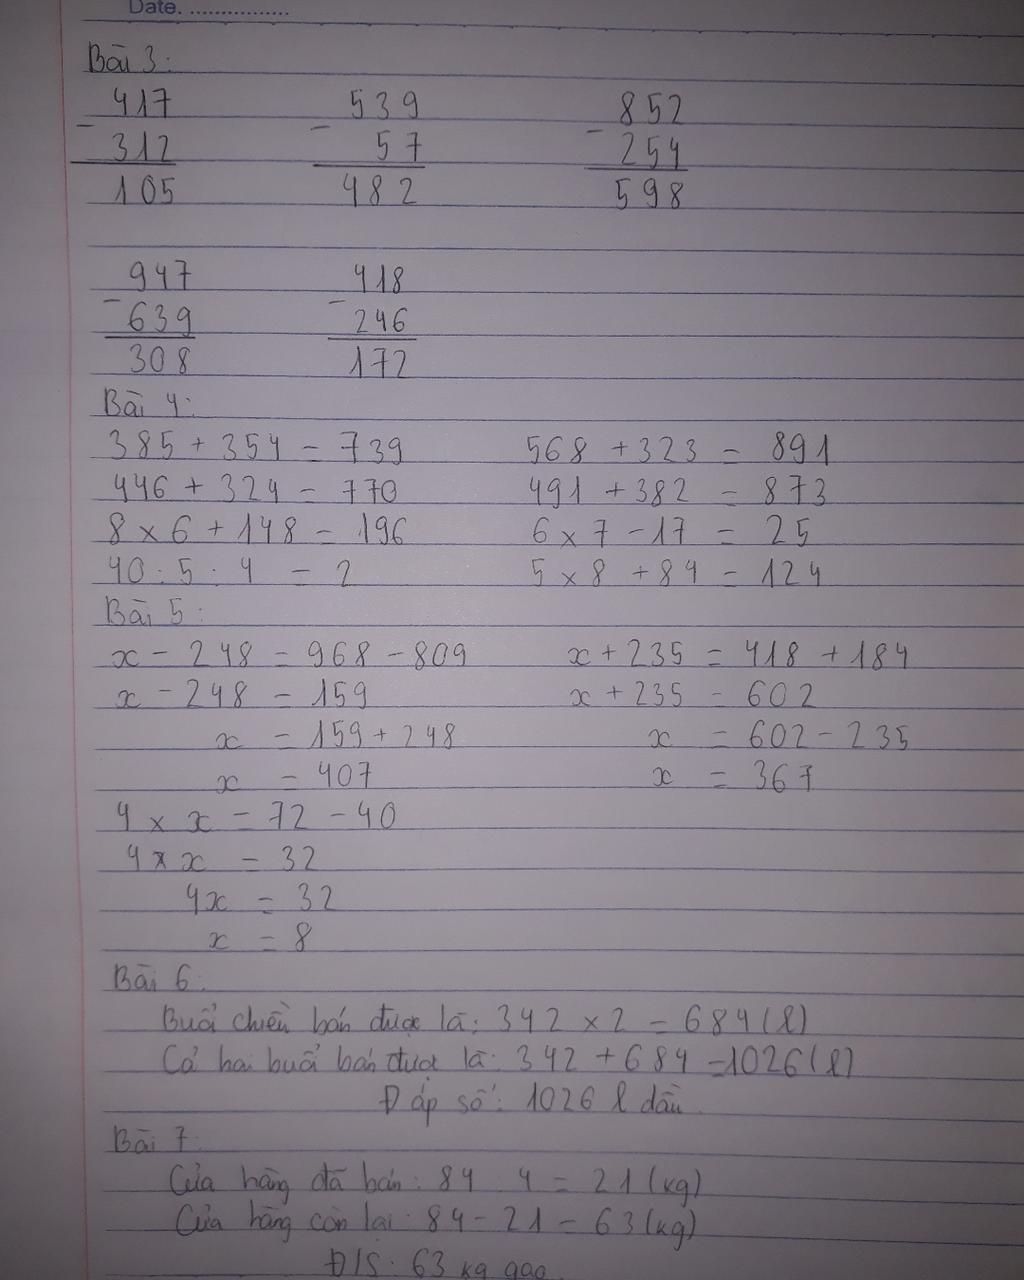 Date. ................
Bài 3:
417 539 852
- 312 - 57 - 254
105 482 598
947 418
- 639 - 246
308 172
Bài 4:
385 + 354 = 739 568 + 323 = 891
446 + 324 = 770 491 + 382 = 873
8 x 6 + 148 = 196 6 x 7 - 17 = 25
40 : 5 : 4 = 2 5 x 8 + 84 = 124
Bài 5:
x - 248 = 968 - 809 x + 235 = 418 + 184
x - 248 = 159 x + 235 = 602
x = 159 + 248 x = 602 - 235
x = 407 x = 367
4 x x = 72 - 40
4 x x = 32
4x = 32
x = 8
Bài 6:
Buổi chiều bán được là: 342 x 2 = 684 (l)
Cả hai buổi bán được là: 342 + 684 = 1026 (l)
Đáp số: 1026 l dầu
Bài 7:
Cửa hàng đã bán: 84 : 4 = 21 (kg)
Cửa hàng còn lại: 84 - 21 = 63 (kg)
Đ/S: 63 kg gạo